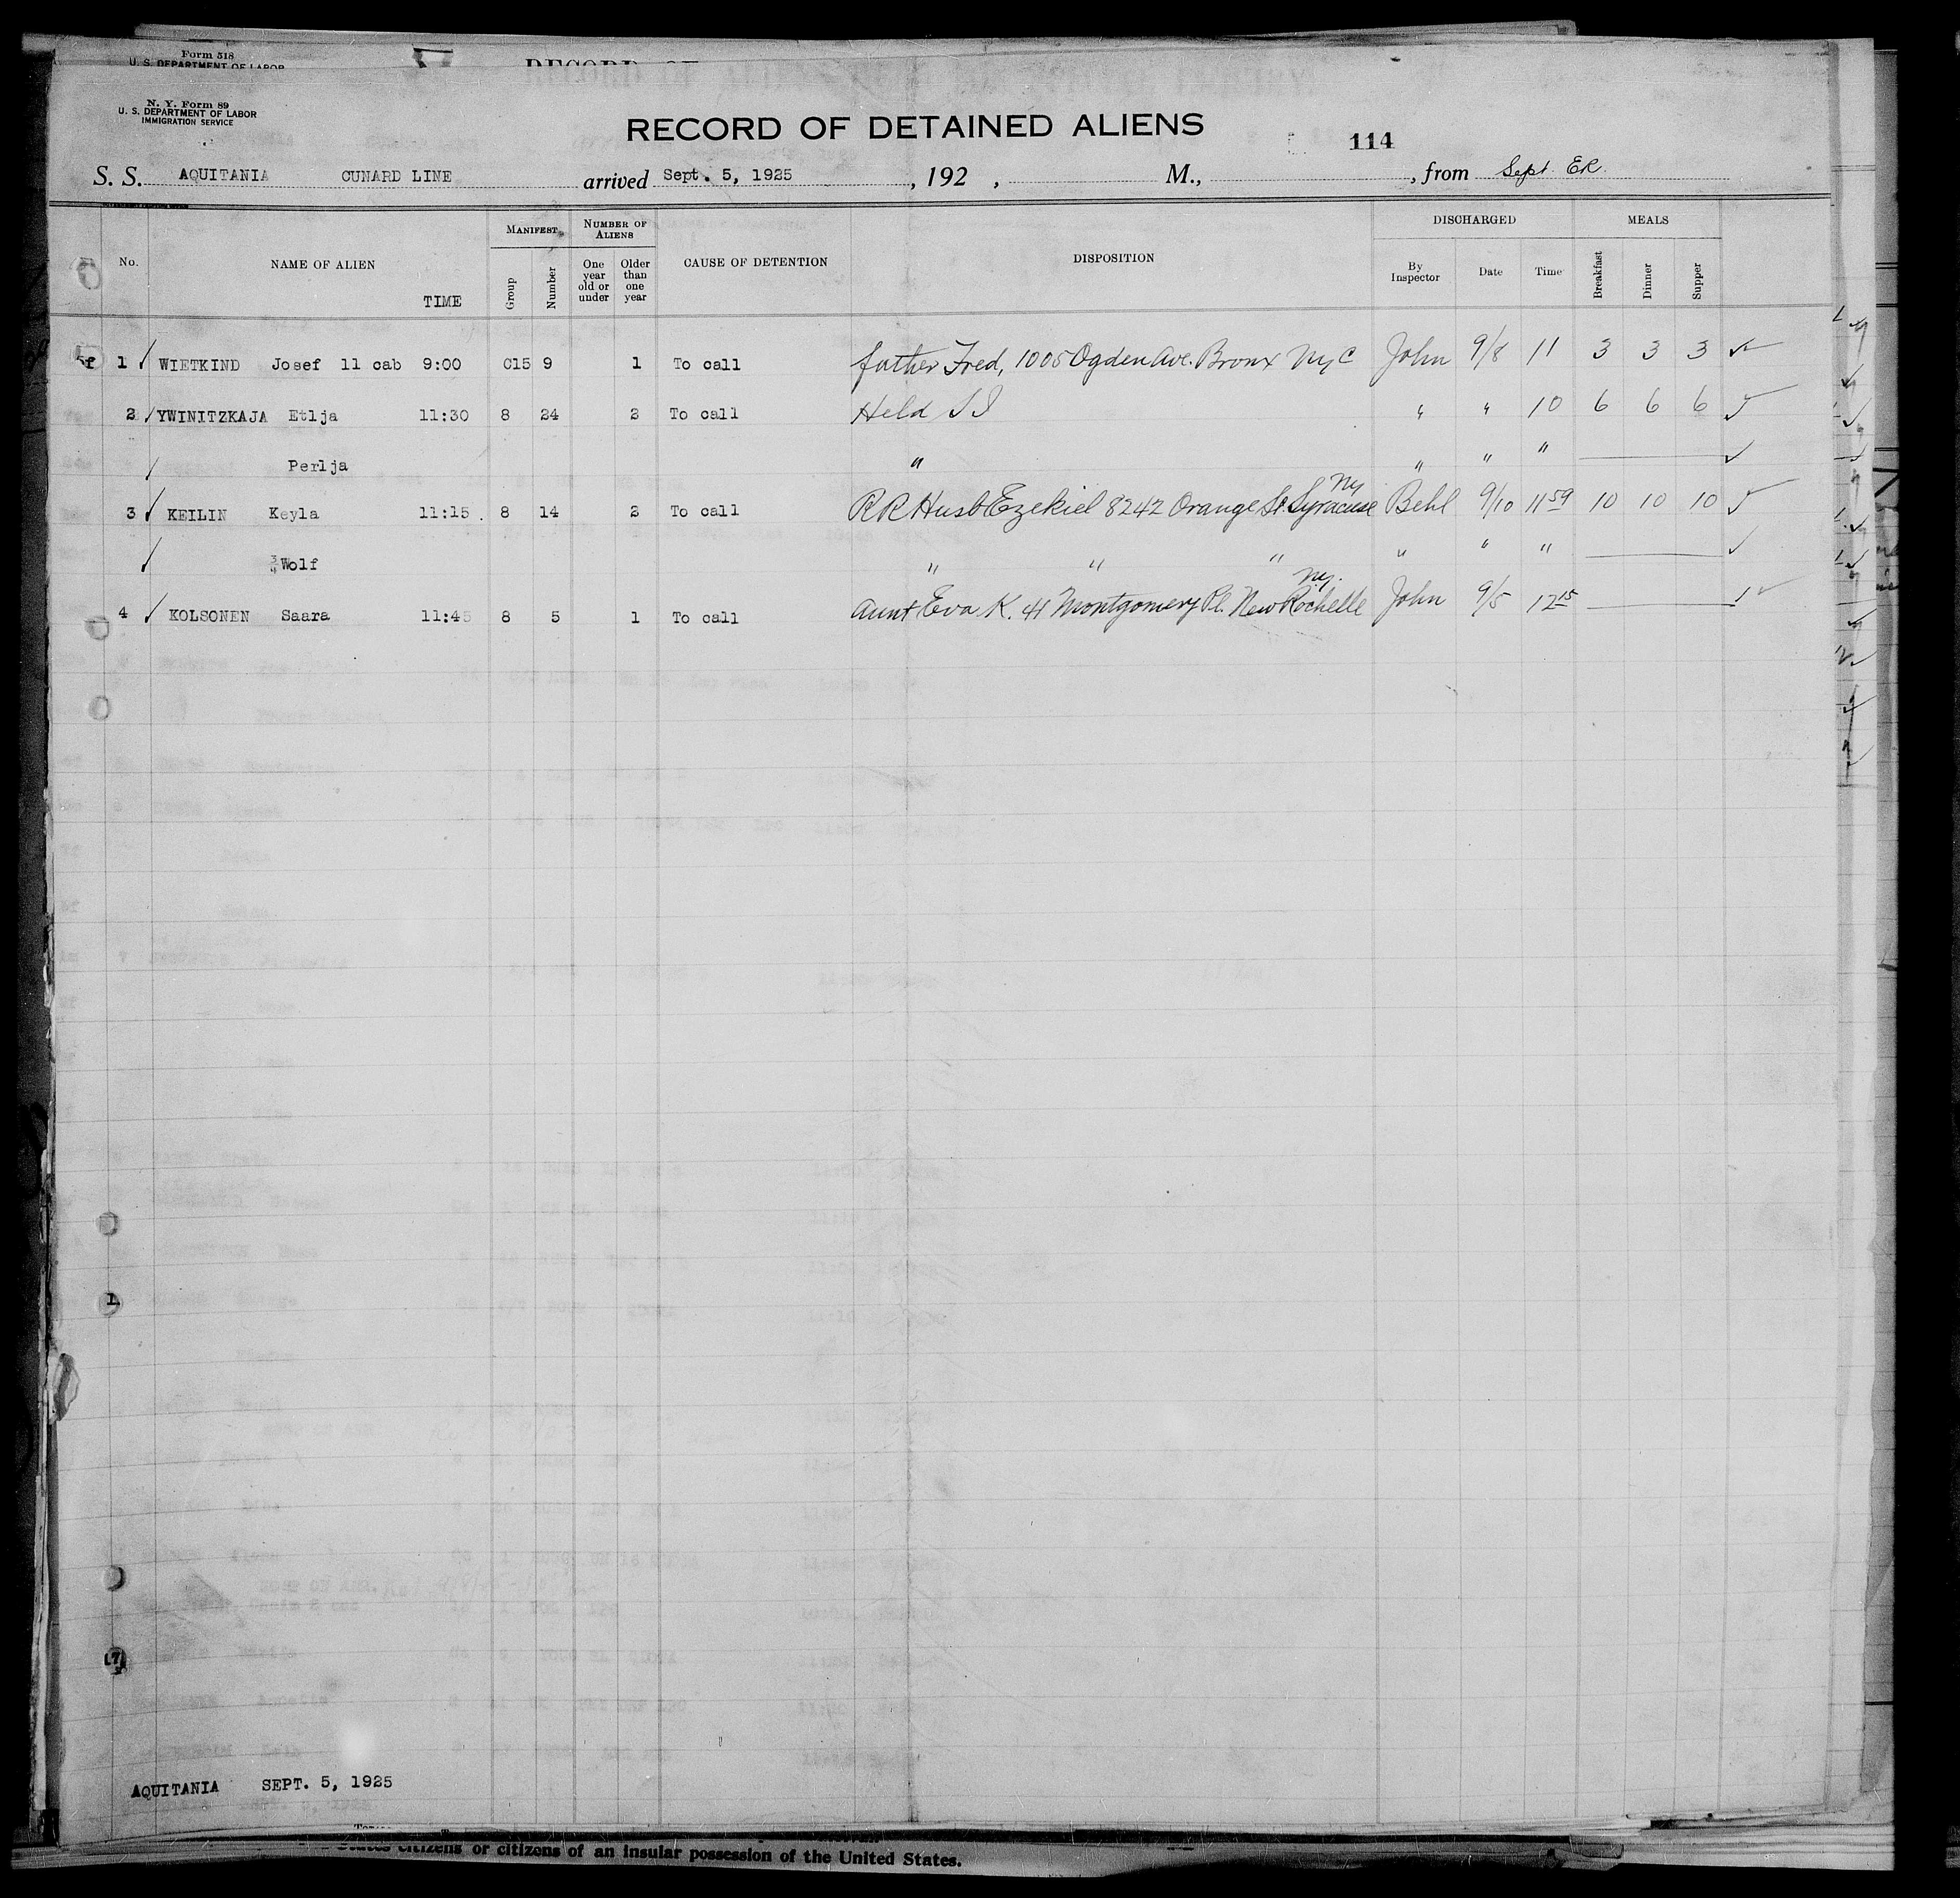 Form 518
U. S. DEPARTMENT OF LABOR
N. Y. Form 89
U. S. DEPARTMENT OF LABOR
IMMIGRATION SERVICE
RECORD OF DETAINED ALIENS
114
S. S. AQUITANIA CUNARD LINE arrived Sept. 5, 1925, 192 , M., , from Sept ER
No. NAME OF ALIEN TIME MANIFEST Group Number NUMBER OF ALIENS One year old or under Older than one year CAUSE OF DETENTION DISPOSITION DISCHARGED By Inspector Date Time MEALS Breakfast Dinner Supper
1 ✓ WIETKIND Josef 11 cab 9:00 C15 9 1 To call father Fred, 1005 Ogden Ave. Bronx NyC John 9/8 11 3 3 3 ✓
2 ✓ YWINITZKAJA Etlja 11:30 8 24 2 To call Held SI " " 10 6 6 6 ✓
✓ Perlja " " " " ✓
3 ✓ KEILIN Keyla 11:15 8 14 2 To call RR Husb Ezekiel 8242 Orange St Syracuse Ny Behl 9/10 11 59 10 10 10 ✓
✓ Wolf " " " " " " ✓
4 ✓ KOLSONEN Saara 11:45 8 5 1 To call Aunt Eva K. 41 Montgomery Pl. New Rochelle Ny. John 9/5 12 15 ✓
AQUITANIA SEPT. 5, 1925
States citizens or citizens of an insular possession of the United States.